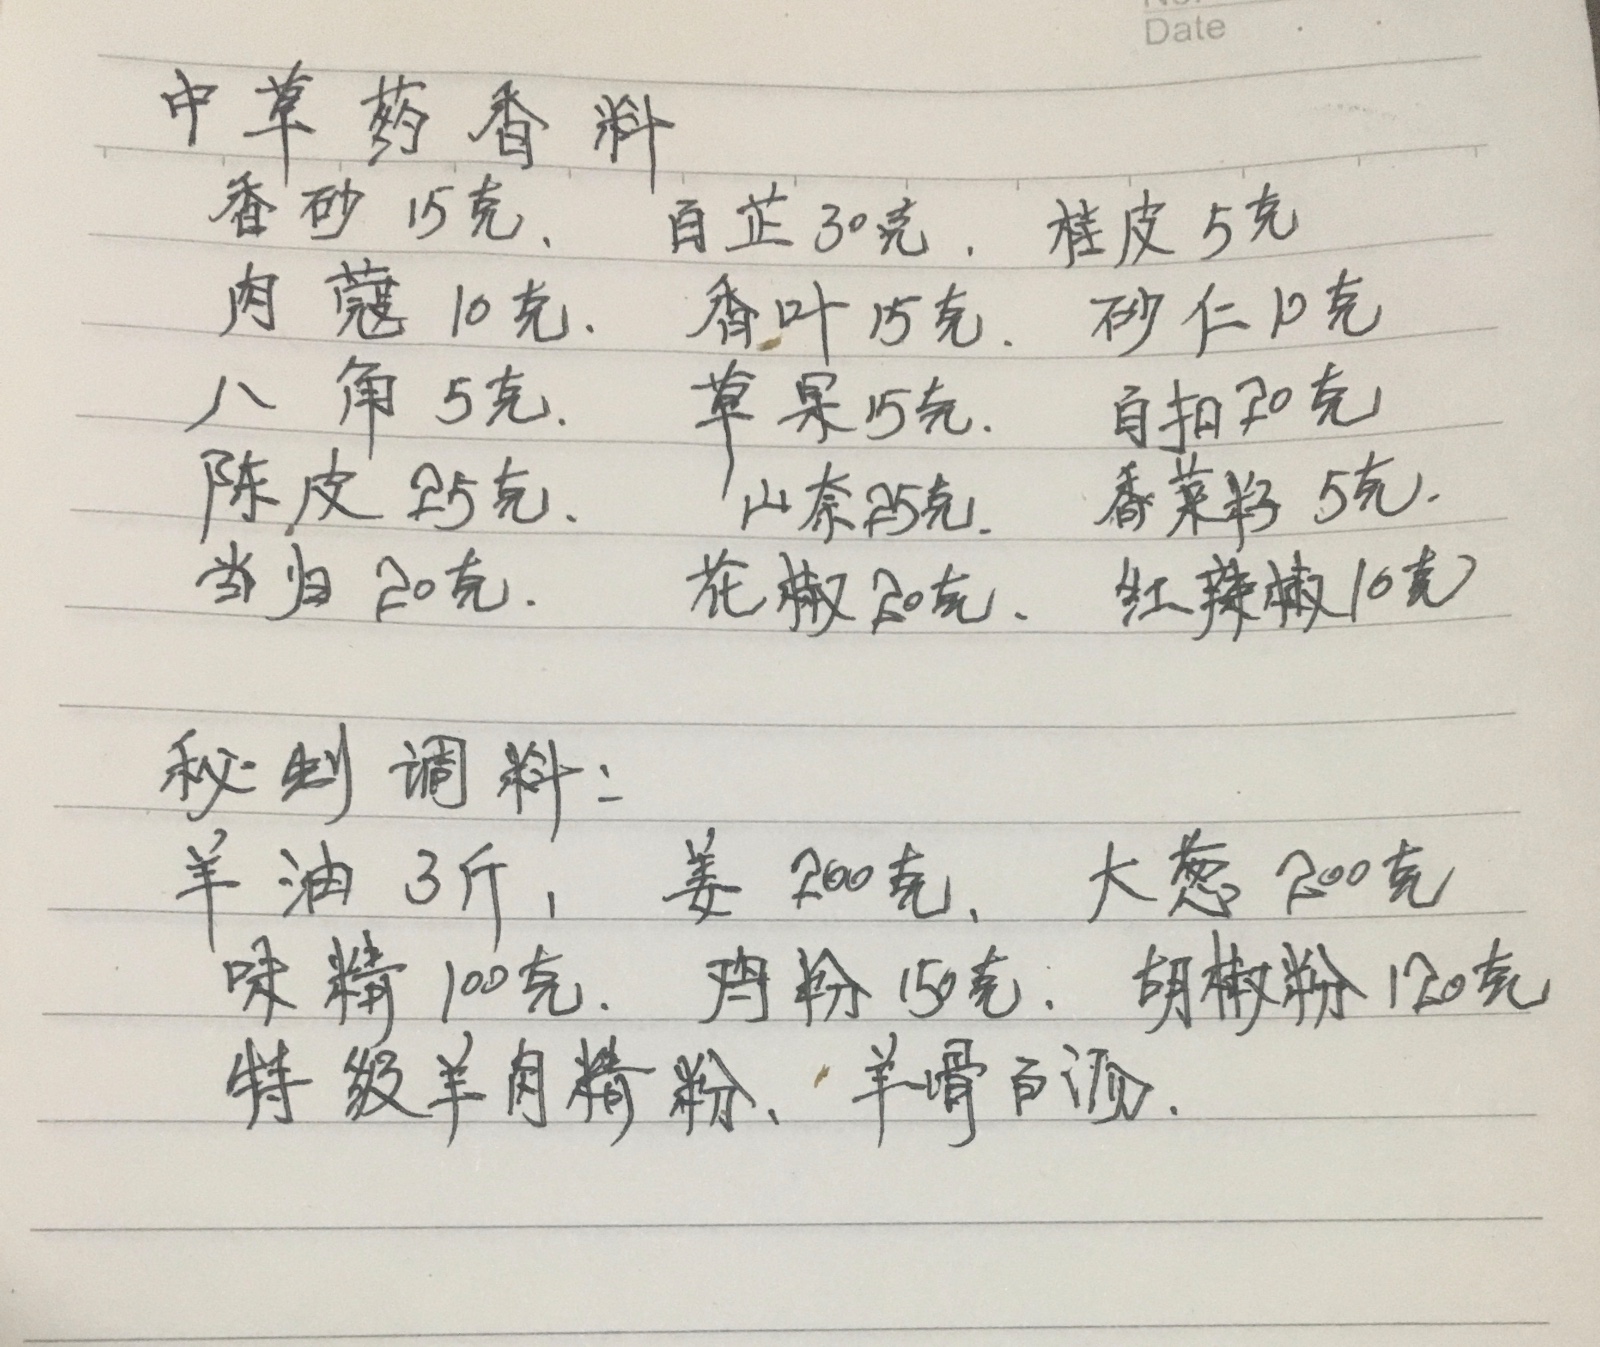 Date
中草药香料
香砂 15克、 白芷30克. 桂皮 5克
肉蔻 10克. 香叶15克. 砂仁10克
八角 5克. 草果15克. 白扣20克
陈皮 25克. 山奈25克. 香菜籽 5克.
当归 20克. 花椒20克. 红辣椒10克
秘制调料:
羊油 3斤, 姜 200克、 大葱 200克
味精 100克. 鸡粉 150克. 胡椒粉 120克
特级羊肉精粉、羊骨白汤.